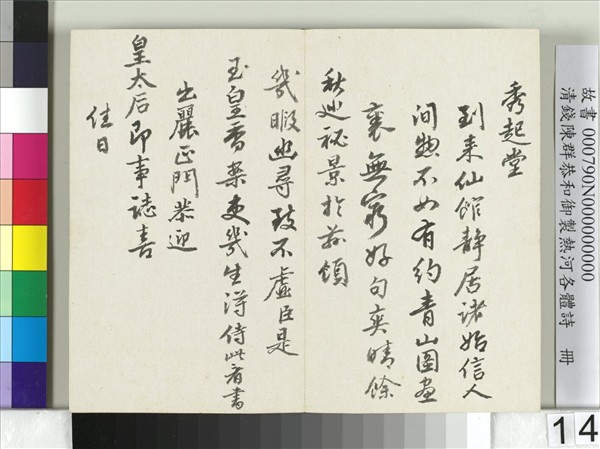 故書 000790N000000000
清錢陳群恭和御製熱河各體詩 冊
秀起堂
到来仙館静居諸始信人
间惣不如有約青山圖畫
裏無窮好句爽晴餘
秋巡祕景於茲領
幾暇幽尋致不虛臣是
玉皇香案吏幾生浔侍此看書
出麗正門恭迎
皇太后即事誌喜
佳日
14